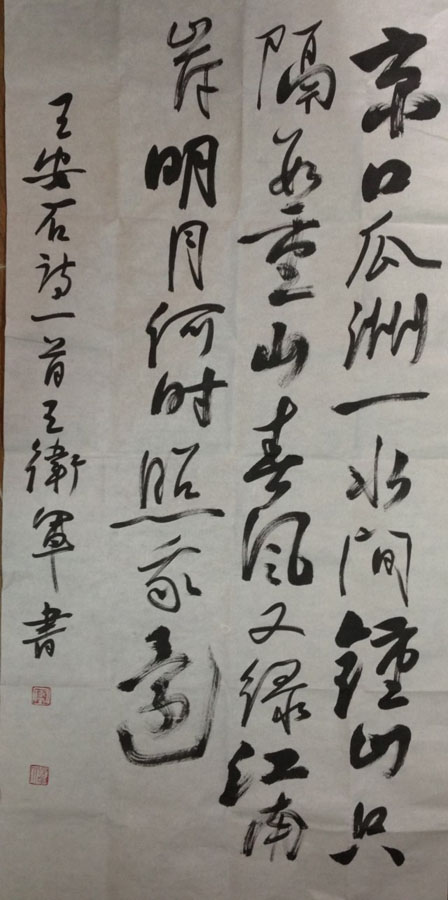 京口瓜洲一水间鍾山只
隔数重山春风又绿江南
岸明月何时照我還
王安石诗一首王衛軍書